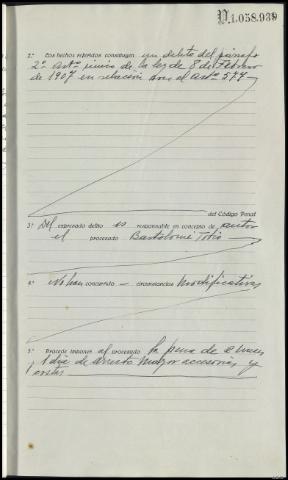 N.1.058.939
2.ª Los hechos referidos constituyen un delito del párrafo
2º artº único de la ley de 8 de Febrero
de 1907 en relación con el artº 577
del Código Penal
3.ª Del expresado delito es responsable en concepto de autor
el procesado Bartolomé
4.ª No han concurrido — circunstancias modificativas
5.ª Procede imponer al procesado la pena de 2 meses
y 1 dia de arresto mayor accesorias y
costas